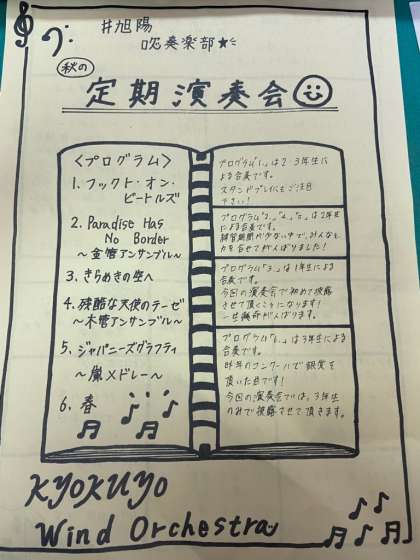 #旭陽
吹奏楽部
秋の
定期演奏会
<プログラム>
1. フックト・オン・
ビートルズ
2. Paradise Has
No Border
～金管アンサンブル～
3. きらめきの空へ
4. 残酷な天使のテーゼ
～木管アンサンブル～
5. ジャパニーズグラフティ
～嵐×ドレー～
6. 春
プログラム「1.」は2・3年生に
よる合奏です。
スタンドプレイにもご注目
下さい!
プログラム「2.」「4.」「5.」は2年生
による合奏です。
練習期間が少ない中で、みんなと
力を合せてがんばりました!
プログラム「3.」は1年生による
合奏です。
今回の演奏会で初めて披露
させて頂くことになります!
一生懸命がんばります。
プログラム「6.」は3年生による
合奏です。
昨年のコンクールで銀賞を
頂いた曲です!
今回の演奏会では、3年生
のみで披露させて頂きます。
KYOKUYO
Wind Orchestra